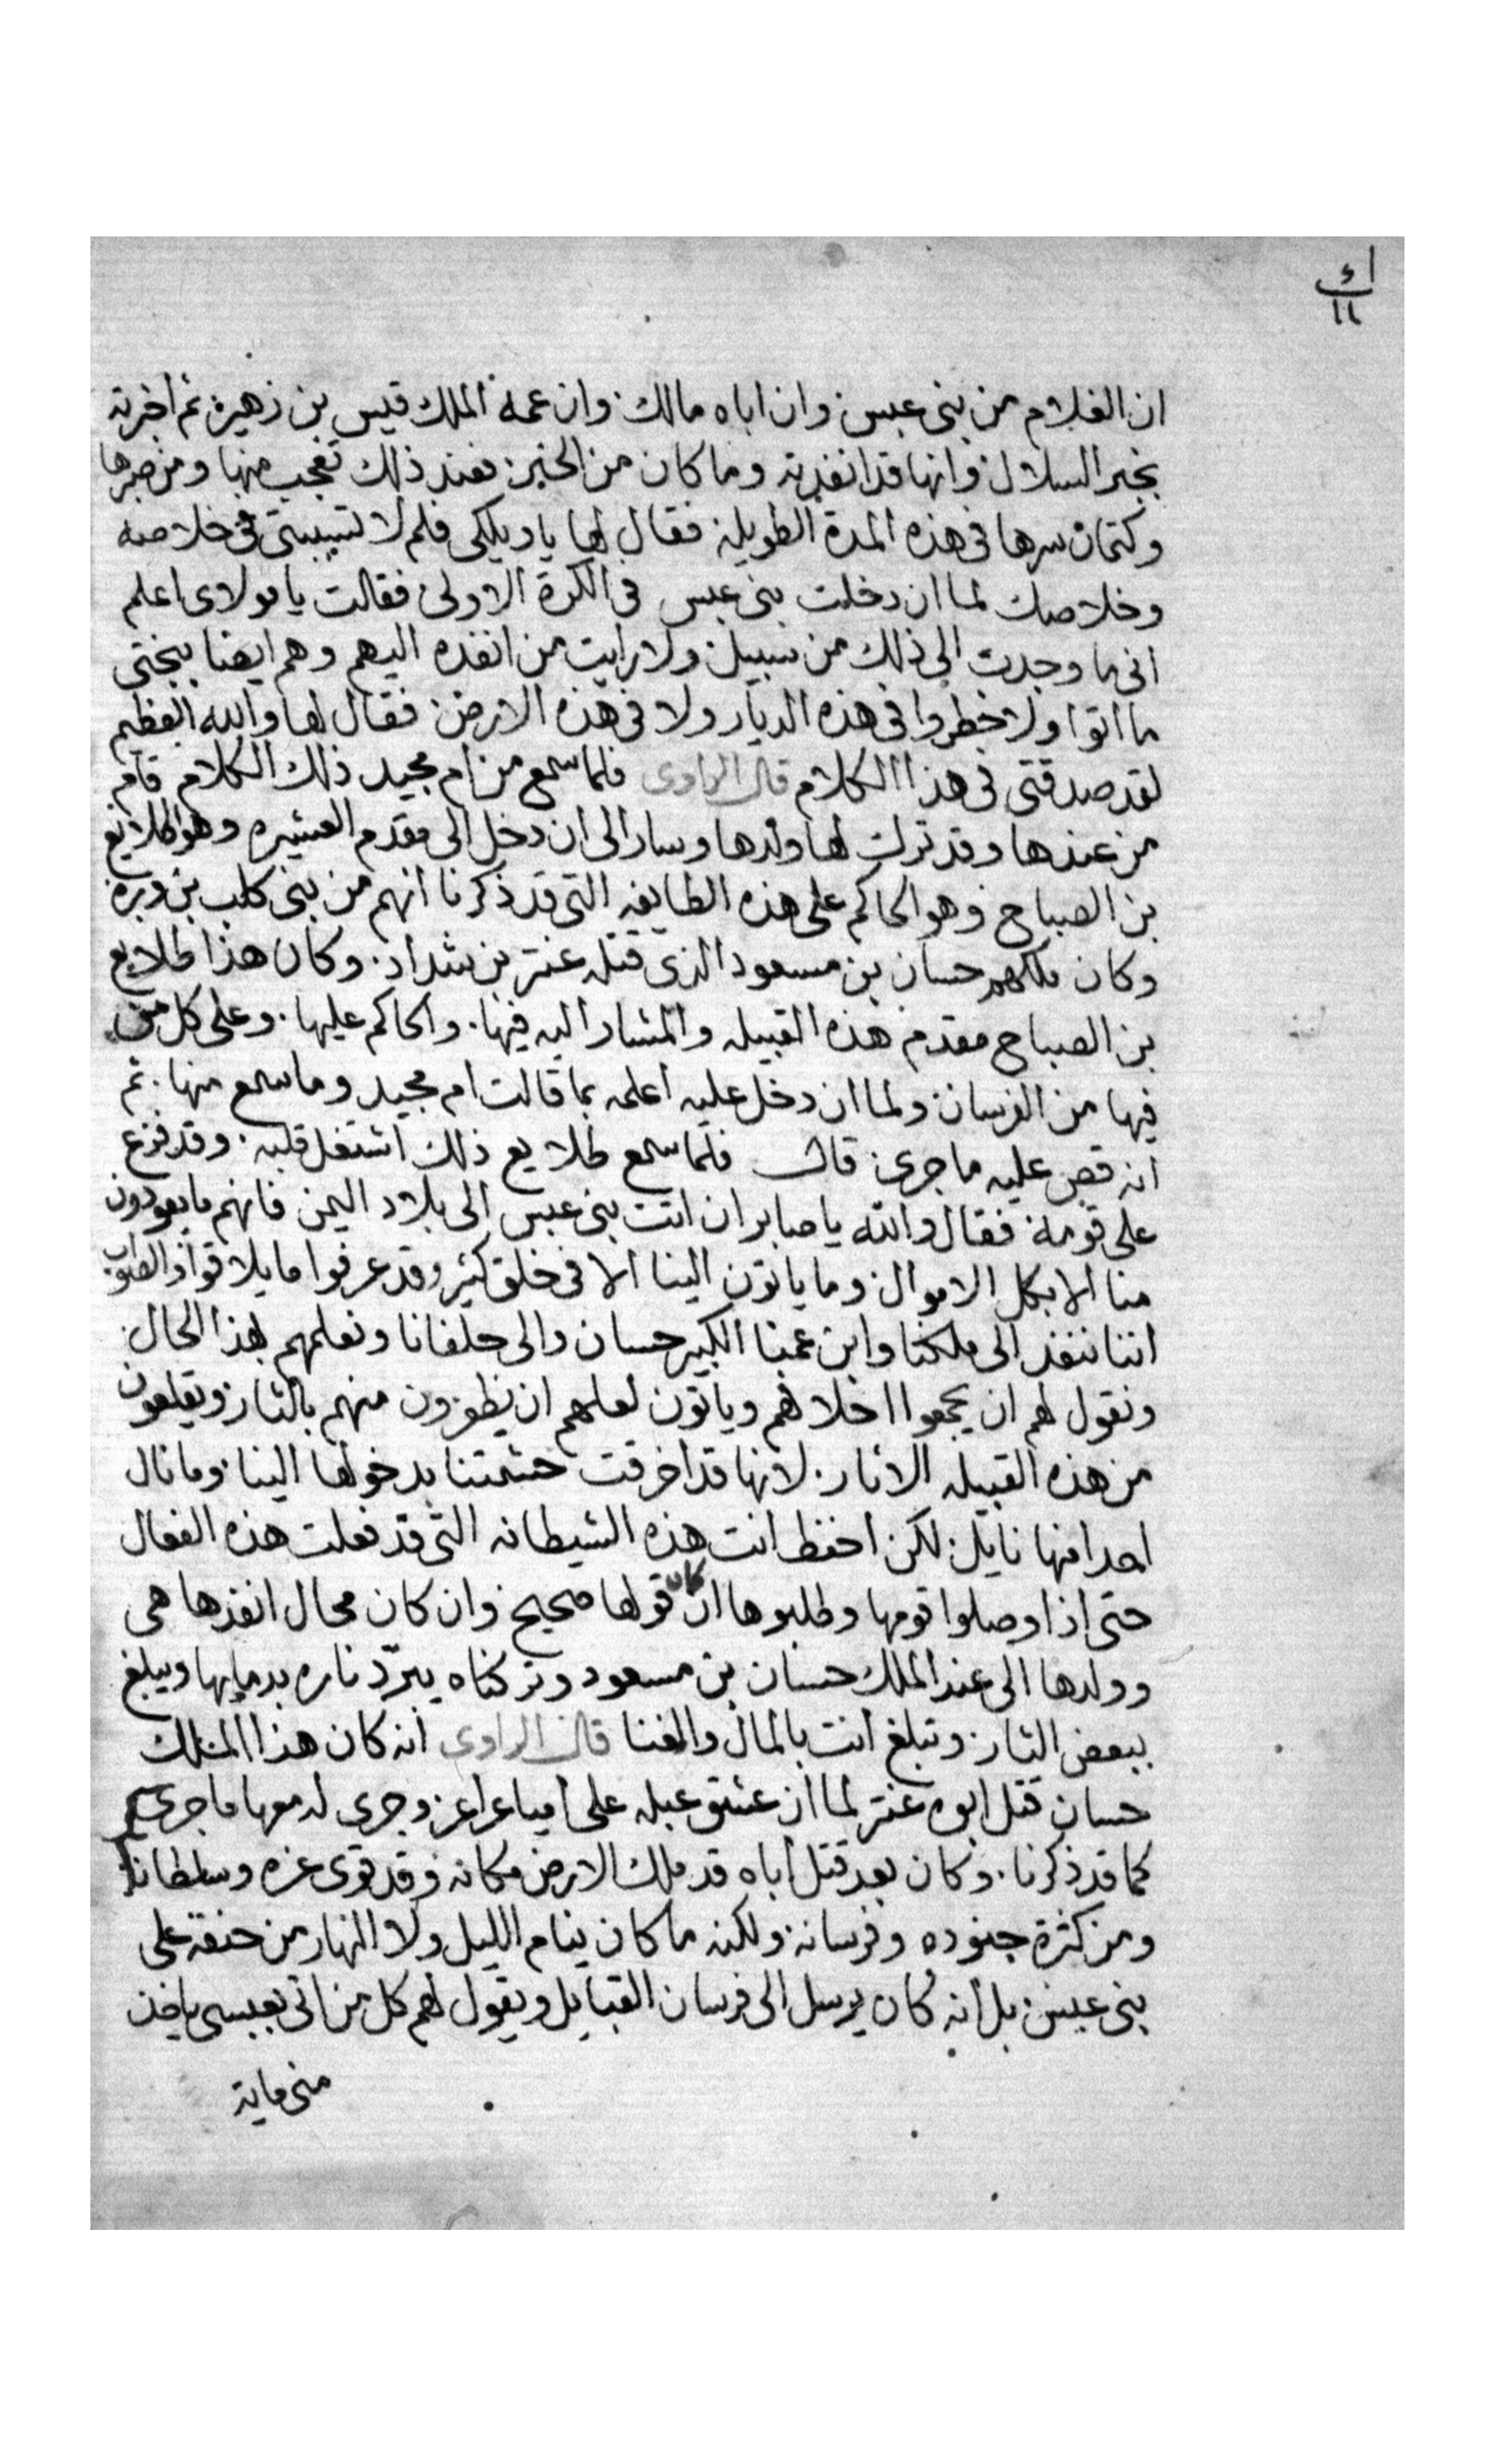 ان الغلام من بنى عبس وان اباه مالك وان عمه الملك قيس بن زهير ثم أخبرته
بخبر السلال وانها قد انفذته وما كان من الخبر فعند ذلك تعجب منها ومن صبرها
وكتمان سرها فى هذه المدة الطويله فقال لها يا ويلكى فلم لا تسببتى فى خلاصه
وخلاصك لما ان دخلت بنى عبس فى الكرة الاولى فقالت يا مولاى اعلم
انى ما وجدت الى ذلك من سبيل ولا رايت من انفذه اليهم وهم ايضا ببختى
ما اتوا ولا خطروا فى هذه الديار ولا فى هذه الارض فقال لها والله العظيم
لقد صدقتى فى هذا الكلام قال الراوى فلما سمع من ام مجيد ذلك الكلام قام
من عندها وقد تركت لها ولدها وسار الى ان دخل الى مقدم العشيره وهو طلايع
بن الصباح وهو الحاكم على هذه الطايفه التى قد ذكرنا انهم من بنى كلب بن وبره
وكان ملكهم حسان بن مسعود الذى قتله عنتر بن شداد وكان هذا طلايع
بن الصباح مقدم هذه القبيله والمشار اليه فيها والحاكم عليها وعلى كل من
فيها من الفرسان ولما ان دخل عليه اعلمه بما قالت ام مجيد وما سمع منها ثم
انه قص عليه ما جرى قال فلما سمع طلايع ذلك اشتغل قلبه وقد فزع
على قومه فقال والله يا صابر ان اتت بنى عبس الى بلاد اليمن فانهم ما يعودون
منا الا بكل الاموال وما ياتون الينا الا فى خلق كثير وقد عرفوا ما يلاقوا والصواب
اننا ننفذ الى ملكنا وابن عمنا الكبير حسان والى حلفانا ونعلمهم بهذا الحال
ونقول لهم ان يجمعوا اخلاهم وياتون لعلهم ان يظفرون منهم بالثار ويقلعون
من هذه القبيله الاثار لانها قد اخرقت حشمتنا بدخولها الينا وما نال
احدا منها نايل لكن احفظ انت هذه الشيطانه التى قد فعلت هذه الفعال
حتى اذا وصلوا قومها وطلبوها ان كان قولها صحيح وان كان محال انفذها هى
وولدها الى عند الملك حسان بن مسعود وتركناه يبرّد ناره بدمايها ويبلغ
ببعض الثار وتبلغ انت بالمال والغنا قال الراوى انه كان هذا الملك
حسان قتل ابوه عنتر لما ان عشق عبله على امياه عراعر وجرى له معها ما جرى
كما قد ذكرنا وكان بعد قتل اباه قد ملك الارض مكانه وقد قوى عزه وسلطانه
ومن كثرة جنوده وفرسانه ولكنه ما كان ينام الليل ولا النهار من حنقه على
بنى عبس بل انه كان يرسل الى فرسان القبايل ويقول لهم كل من اتى بعبسى ياخذ
منى ماية